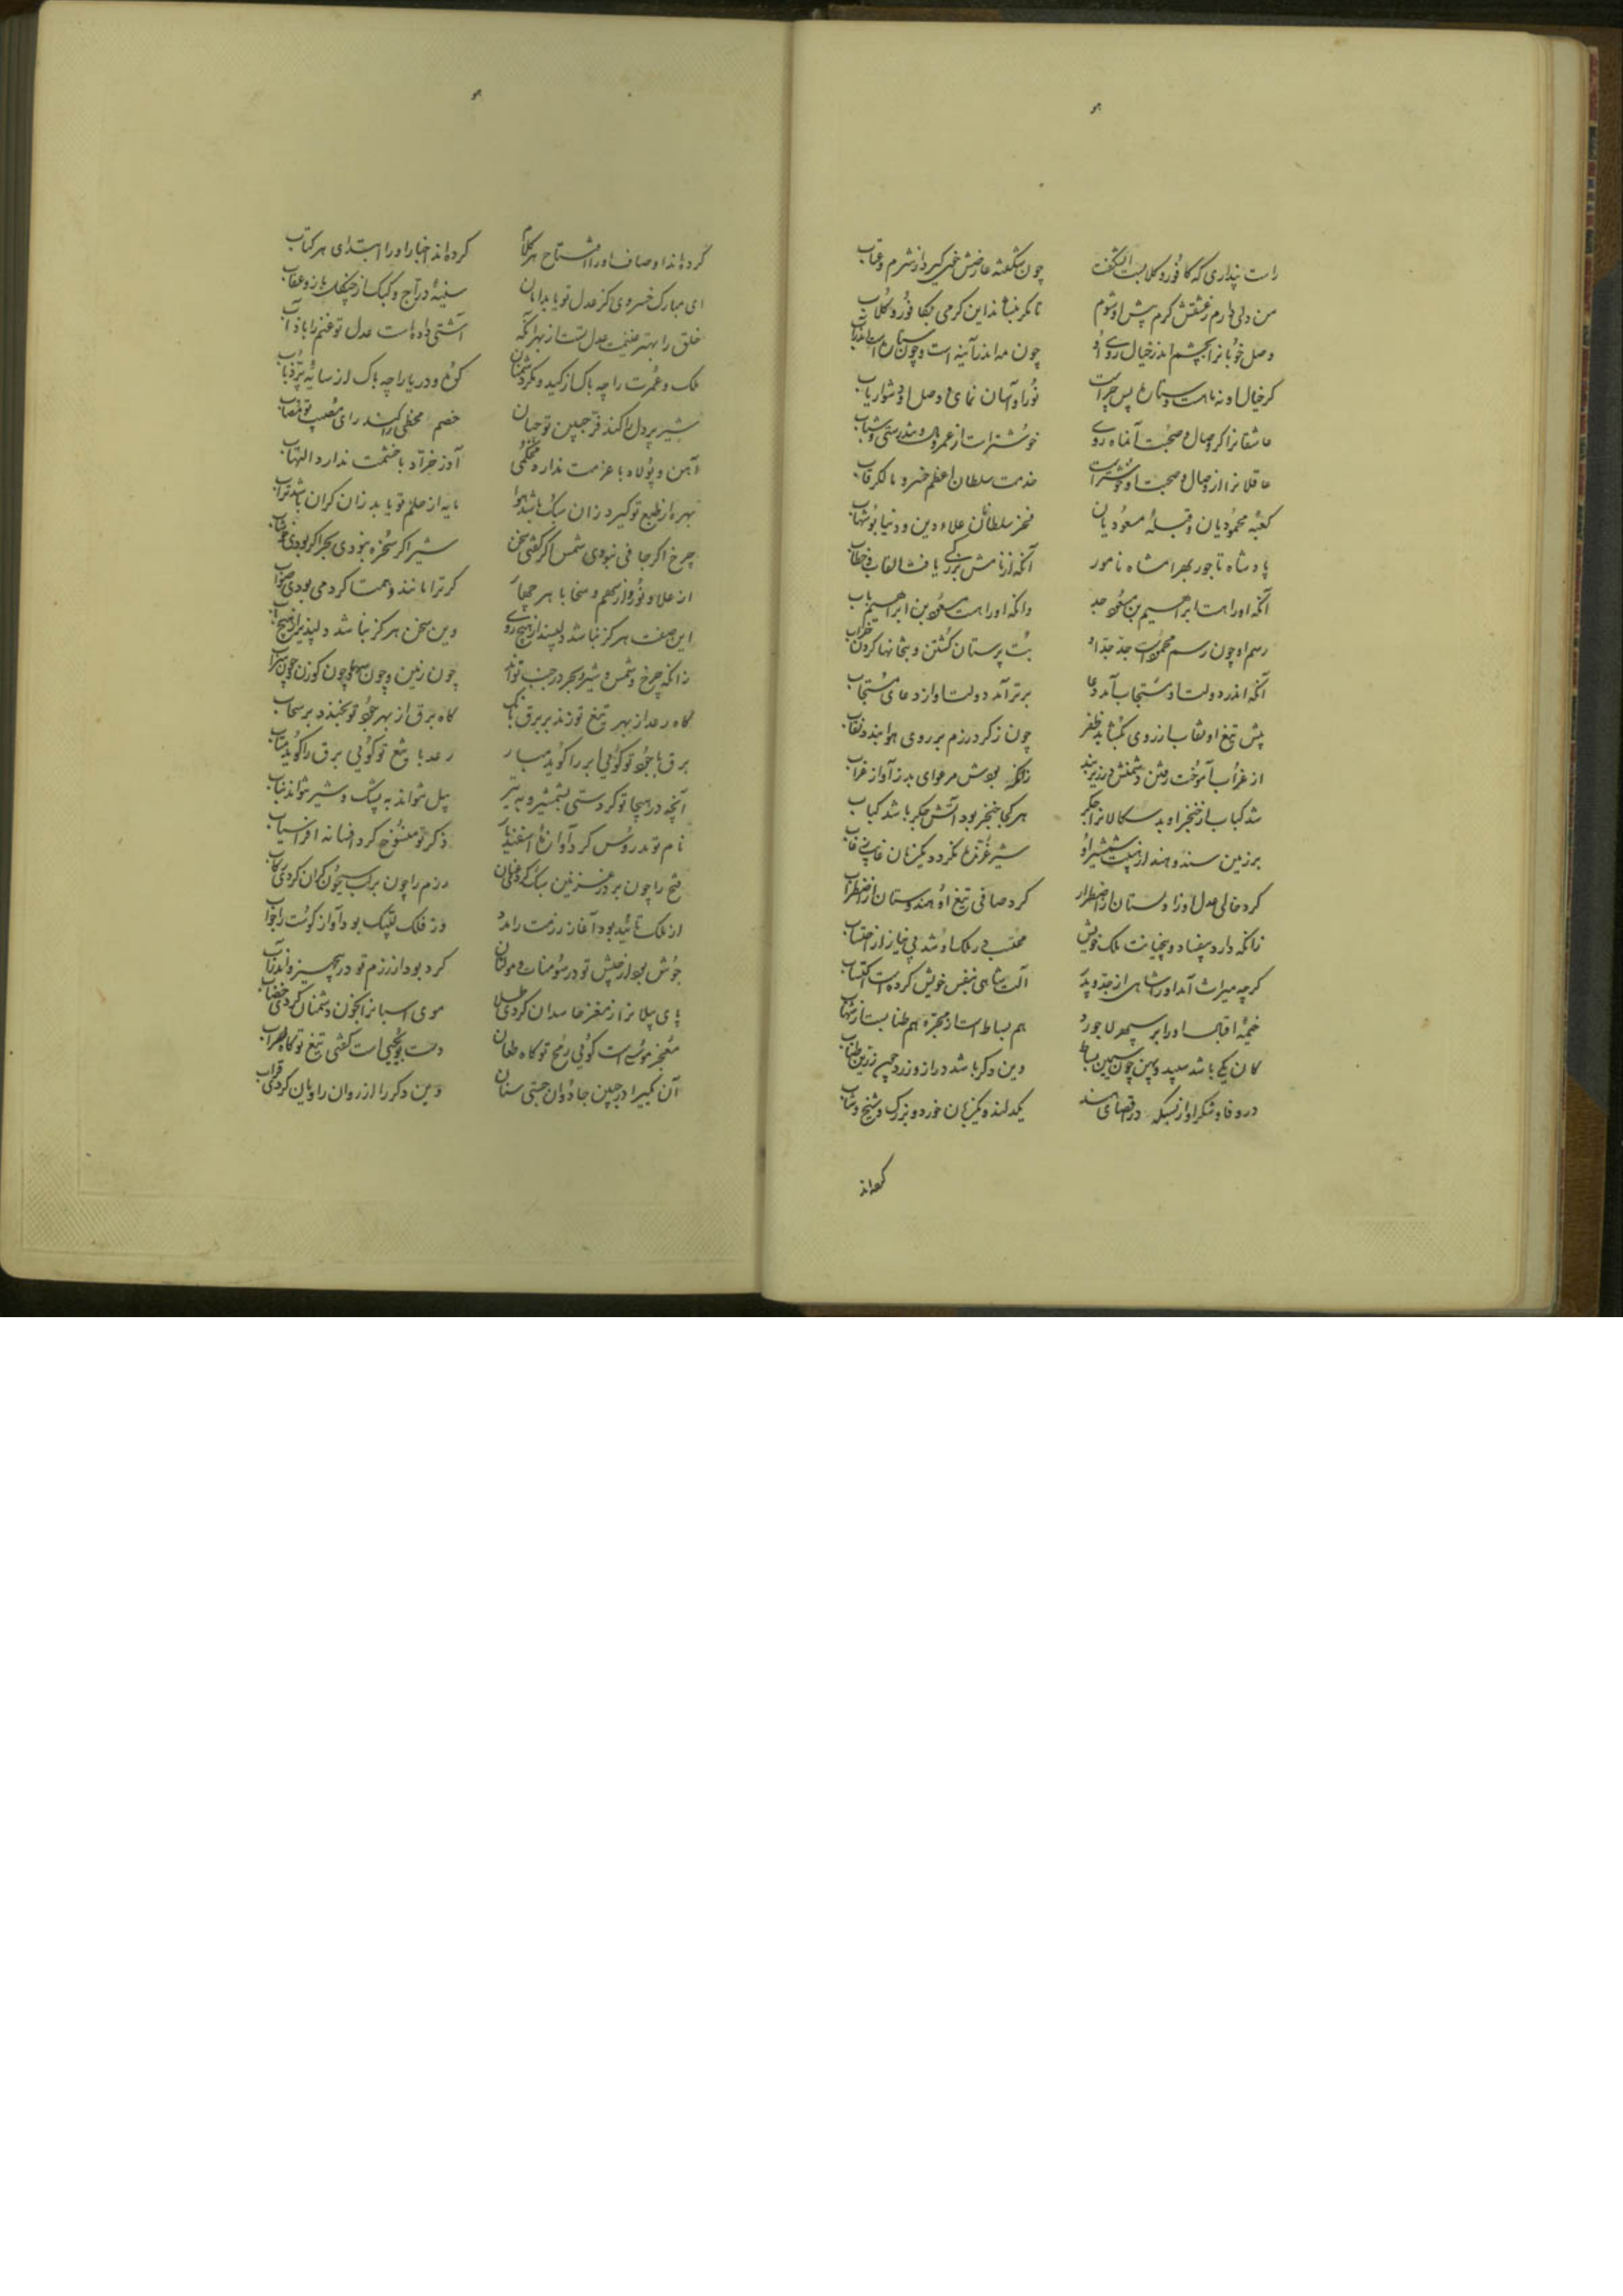 راست پنداری که کافور و کلابست ای شکفت چون شکفته عارضش خوی کیرد از شرم و عتاب
من دلی دارم ز عشقش کرم پیش او شوم تا مکر بنشاند این کرمی بکافور و کلاب
وصل خوبانرا بچشم اندر خیال روی او چون مه اندر آینه است و چون ستاره است اندر آب
کر خیال او نه ماهست و ستاره پس چراست نور او آسان نمای و وصل او دشوار یاب
عاشقانرا کر وصال و صحبت آن ماه روی خوشترست از عمر و مال و تندرستی و شباب
عاقلانرا از وصال و صحبت او خوشترست خدمت سلطان اعظم خسرو مالک رقاب
کعبهٔ محمودیان و قبلهٔ مسعودیان فخر سلطانان علاء دین و دنیا بوشهاب
پادشاه تاجور بهرامشاه نامور آنکه از نامش بزرکی یافت القاب و خطاب
آنکه اورا هست ابراهیم بن مسعود جد وانکه اورا هست مسعود بن ابراهیم باب
رسم او چون رسم محمودست جد جد او بت پرستان کشتن و بتخانها کردن خراب
آنکه اندر دولت او مستجاب آمد دعا برتر آمد دولت او از دعای مستجاب
پیش تیغ او نقاب از روی بکشاید ظفر چون ز کرد رزم بر روی هوا بندد نقاب
از غراب آموخت رفتن دشمنش در زیر بند زانکه بودش مرغوای بد ز آواز غراب
شد کباب از خنجر او بدسکالانرا جکر هر کجا خنجر بود آتش جکر باشد کباب
بر زمین سند و هند از هیبت شمشیر او شیر غرنده نکردد یکزمان غایب ز غاب
کرد خالی عدل او زاولستان ز اضطرار کرد صافی تیغ او هندوستان از اضطراب
زانکه دارد بیفساد و بیخیانت ملک خویش محتسب در ملک او شد بی نیاز از احتساب
کرچه میراث آمد اورا شاهی از جد و پدر آلت شاهی بنفس خویش کرده است اکتساب
خیمهٔ اقبال اورا بر سپهر لاجورد هم بساطست از مجره هم طنابست از شهاب
کان یکی باشد سپید و پهن چون سیمین بساط وین دکر باشد دراز و زرد چون زرین طناب
در وفا و شکر او از بسکه در اقصای هند یکدلند و یکزبان خرد و بزرک و شیخ و شاب
کرده اند
کرده اند اوصاف اورا افتتاح هر کلام کرده اند اخبار اورا ابتدای هر کتاب
ای مبارک خسروی کز عدل تو یابد امان سینهٔ دراج و کبک از چنکل باز و عقاب
خلق را بهتر غنیمت عدل تست از بهر آنکه آشتی داده است عدل تو غنم را با ذئاب
ملک و عمرت را چه باک از کید و مکر دشمنان کوه و دریا را چه باک از سایهٔ پر ذباب
شیر پردل را کند فر جبین تو جبان خصم مخطی را کشد رای مصیب تو مصاب
آهن و پولاد با عزمت ندارد محکمی آذر خرّاد با خشمت ندارد التهاب
بهره از طبع تو کیرد زان سبک باشد هوا مایه از حلم تو یابد زان کران باشد تراب
چرخ اکر جافی نبودی شمس اکر کفتی سخن شیر اکر سخره نبودی بحر اکر بودی خوشاب
از علا و نور و از سهم و سخا با هر چهار کر ترا مانند و همتا کردمی بودی صواب
این صفت هرکز نباشد دلپسند از هیچ روی وین سخن هرکز نباشد دلپذیر از هیچ باب
زانکه چرخ و شمس و شیر و بحر در جنب تواند چون زمین و چون سها و چون کوزن و چون سراب
کاه رعد از بهر تیغ تو زند بر برق بانک کاه برق از بهر جود تو بخندد بر سحاب
برق با جود تو کویی ابر را کوید مبار رعد با تیغ تو کویی برق را کوید متاب
آنچه در هیجا تو کردستی بشمشیر و به تیر پیل نتواند به یشک و شیر نتواند بناب
نام تو مدروس کرد آوازهٔ اسفندیار ذکر تو منسوخ کرد افسانه افراسیاب
فتح را چون بر در غزنین سبک کردی عنان رزم را چون بر لب سیحون کران کردی رکاب
از ملک تائید بود آغاز رزمت را مدد وز فلک لبیک بود آواز کوست را جواب
جوش بود از جیش تو در سومنات و مولتان کرد بود از رزم تو در پنجهیر و اندراب
پای پیلانرا ز مغز حاسدان کردی طلی موی اسبانرا بخون دشمنان کردی خضاب
معجز موسی است کویی رمح تو کاه طعان دست بویحیی است کفتی تیغ تو کاه ضراب
آن بکیرا در جبین جادوان جستی سنان وین دکر را از روان راویان کردی قراب